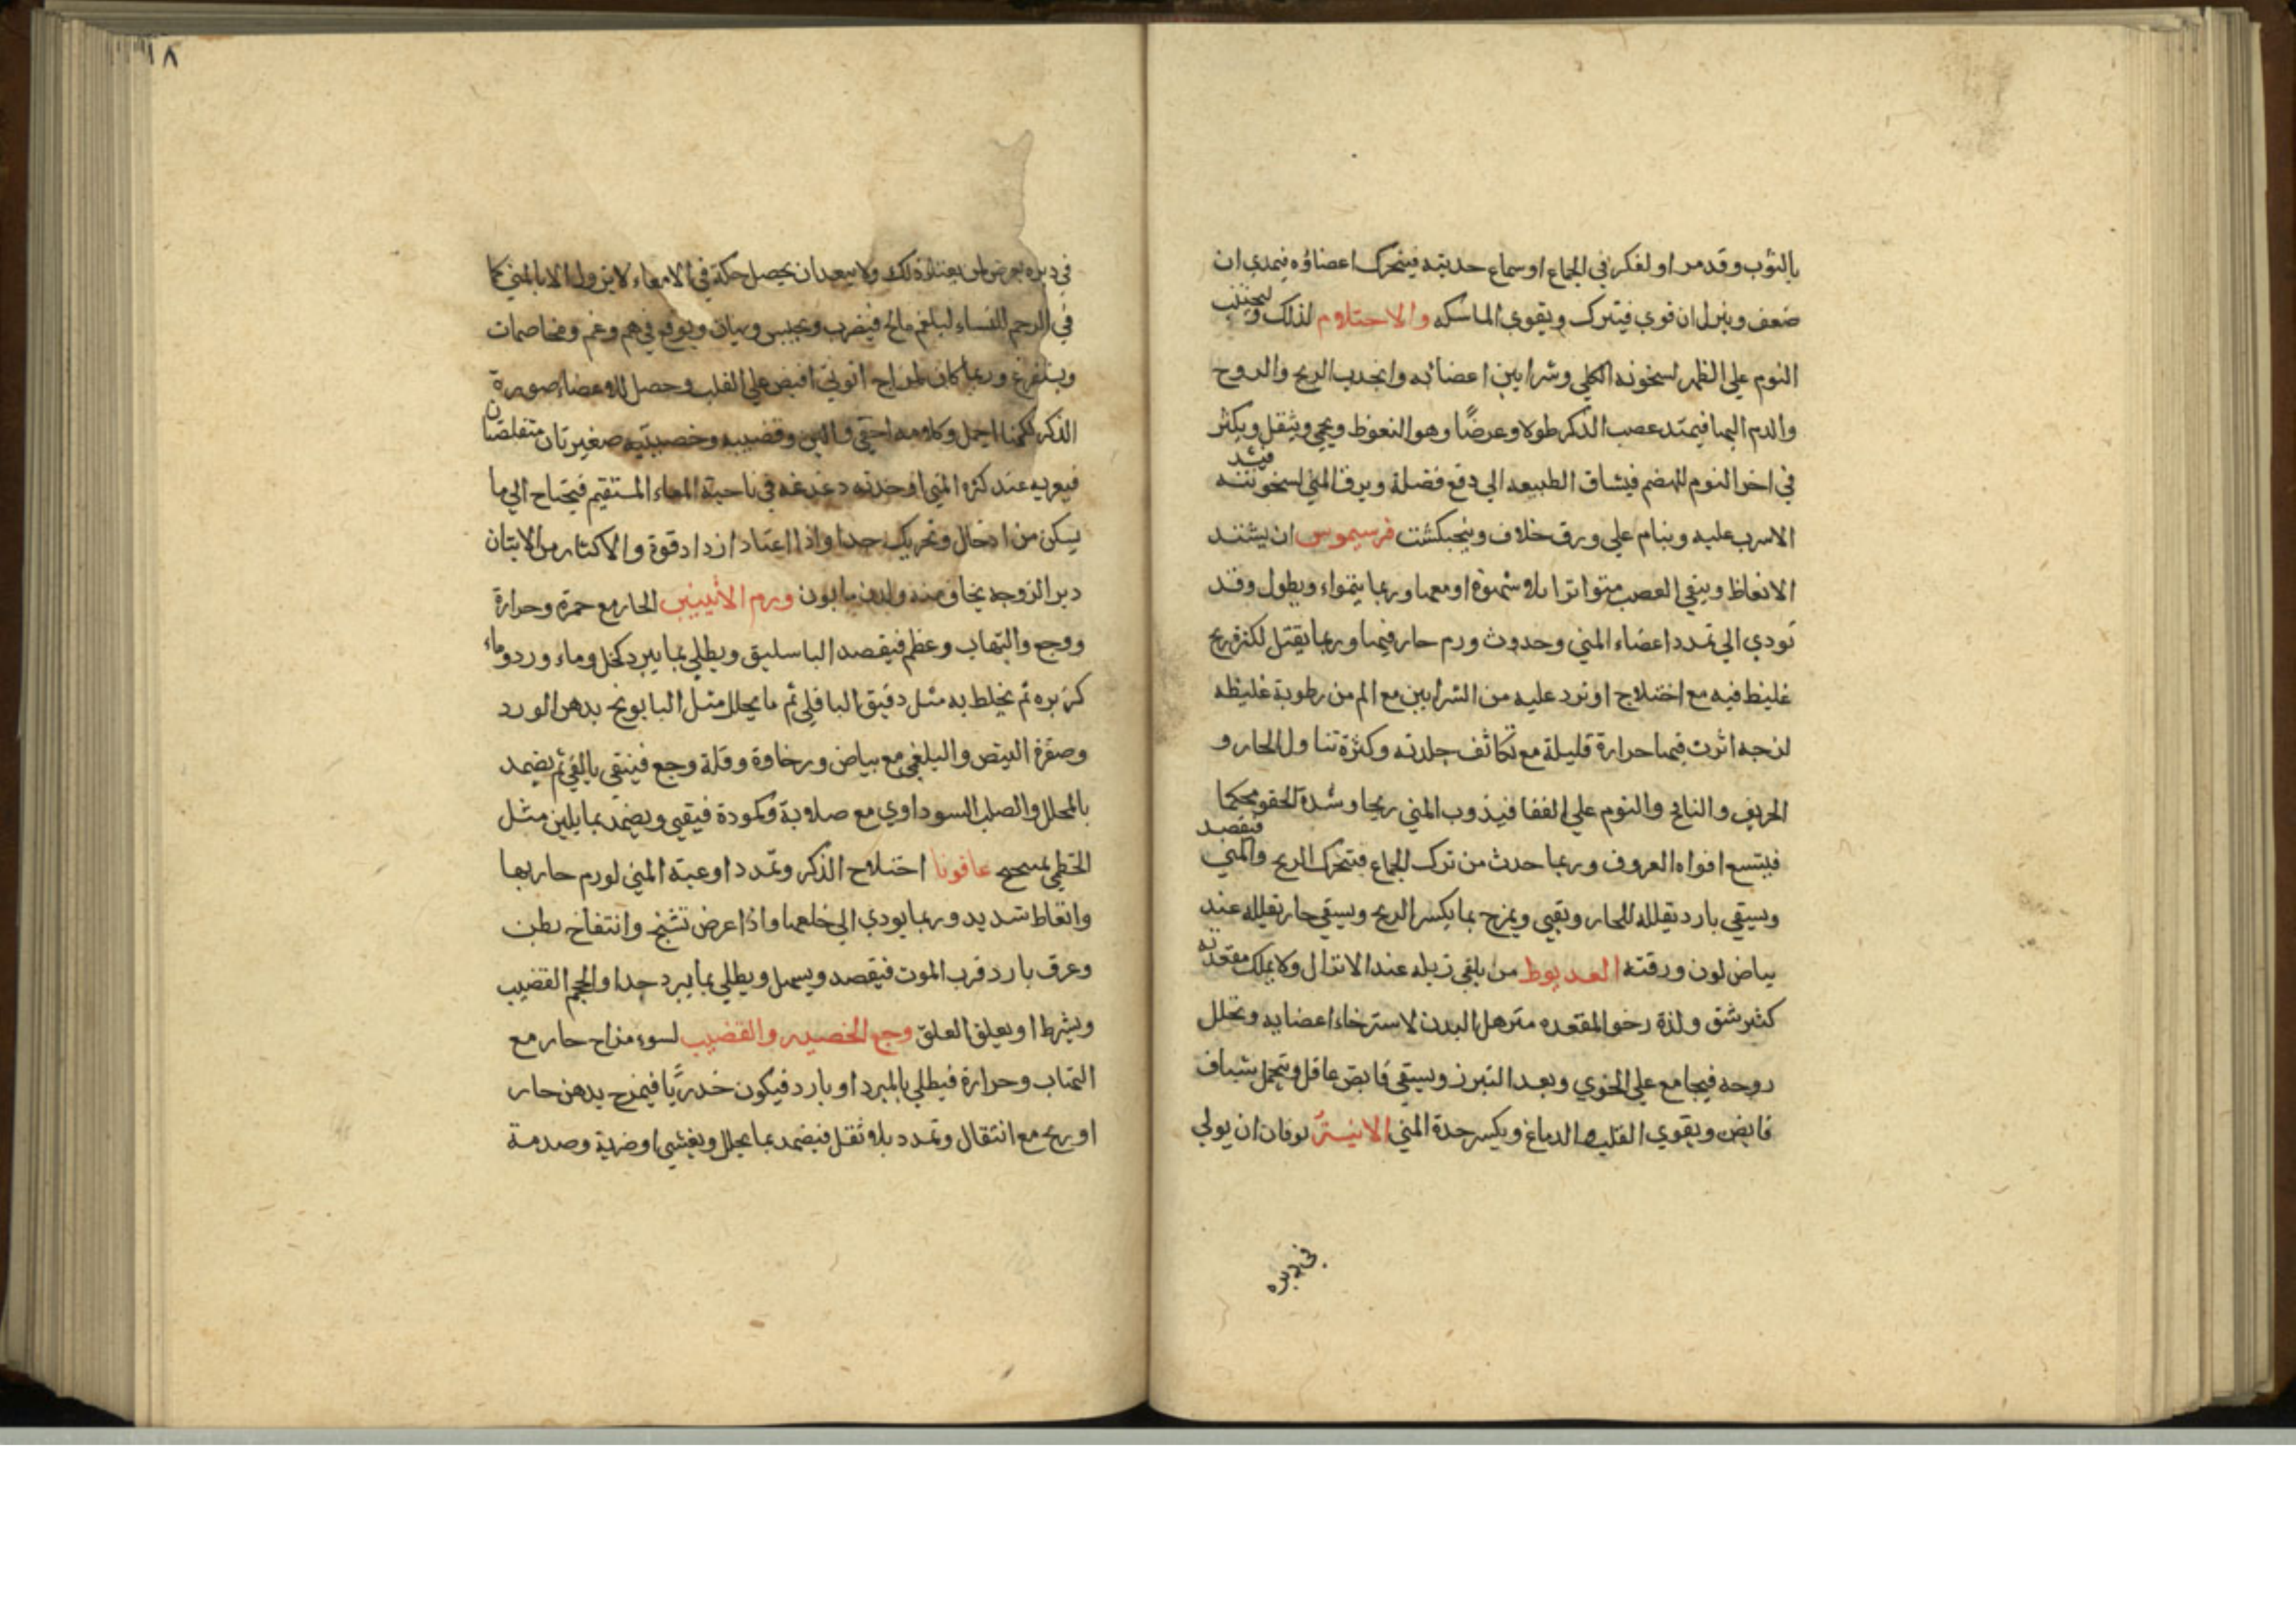 بالثوب وقد مر او لفكر في الجماع او سماع حديثه فيتحرك اعضاؤه فيمدي ان
ضعف وينزل ان قوي فيترك ويقوي الماسكه والاحتلام لذلك وليجتنب
النوم علي الظهر لسخونه الكلي وشرايين اعضائه وانجدب الريح والروح
والدم اليها فيمتد عصب الذكر طولا وعرضًا وهو النعوظ ويحمي ويثقل ويكثر
في اخر النوم للهضم فيشاق الطبيعه الي دفع فضلة ويرق المني لسخونته فيشد
الاسرب عليه وينام علي ورق خلاف وبنجبكشت فرسيموس ان يشتد
الانعاظ وينقي العصب متواترا بلا شهوة او معها وربما ينمواء ويطول وقد
تودي الي تمدد اعضاء المني وحدوث ورم حار فيها وربما يقتل لكثرة ريح
غليظ فيه مع اختلاج او ترد عليه من الشرايين مع الم من رطوبة غليظه
لزجه اثرت فيها حرارة قليلة مع تكاثف جلدته وكثرة تناول الحار و
الحريف والنافخ والنوم علي القفا فيذوب المني ريحا وشدة للحقو محكما
فيتسع افواه العروق وربما حدث من ترك الجماع فتتحرك الريح والمني فيفصد
ويسقي بارد تقلله للحار وتقيي ويمزج بما يكسر الريح ويسقي حار تقلله عند
بياض لون ورقته العديوط من يلقي زبله عند الانزال ولا يملك مقعدته
كثير شبق ولذة رخو المقعده مترهل البدن لاسترخاء اعضايه وتحلل
روحه فيجامع علي الخوي وبعد التبرز ويسقي قابض عاقل وتحمل شياف
قابض ويقوي القلب والدماغ ويكسر حدة المني الابنة نوفان ان يولي
في دبره
١٨
في دبره يعرض لمن يعتاد ذلك ولا يبعد ان يحصل حكة في الامعاء لا يزول الا بالمني كما
في الرحم للنساء لبلغم مالح فيضرب ويحبس ويهان ويوقع في هم وغم ومخاصمات
ويستفرغ وربما كان لمزاج انوثي افيض علي القلب وحصل للاعضاء صورة
الذكر لكنها اجمل وكلامه اخفي والين وقضيبه وخصيتيه صغيرتان متقلصتان
فيعريه عند كثرة المني او حدته دغدغه في ناحية المعاء المستقيم فيحتاج الي ما
يسكن من ادخال وتحريك جدا واذا اعتاد ازداد قوة والاكثار من الاتيان
دبر الزوجه يخاف منه ولدن مابون ورم الأنثيين الحار مع حمرة وحرارة
ووجع والتهاب وعظم فيفصد الباسليق ويطلي بما يبرد كخل وماء ورد وماء
كزبره ثم يخلط به مثل دقيق الباقلي ثم ما يحلل مثل البابونج بدهن الورد
وصفرة البيض والبلغمي مع بياض ورخاوة وقلة وجع فينقي بالقي ثم يضمد
بالمحلل والصلب السوداوي مع صلابة وكمودة فيقيي ويضمد بما يلين مثل
الخطمي بمسحج عاقونا اختلاج الذكر وتمدد اوعية المني لورم حار بها
وانعاظ شديد وربما يودي الي خلعها واذا عرض تشنج وانتفاخ بطن
وعرق بارد قرب الموت فيفصد ويسهل ويطلي بما يبرد جدا والحجم القضيب
ويشرط او يعلق العلق وجع الخصيه والقضيب لسوء مزاج حار مع
التهاب وحرارة فيطلي بالمبرد او بارد فيكون خدريًا فيمزج بدهن حار
او ريح مع انتقال وتمدد بلا ثقل فيضمد بما يحلل ويغشي او ضربة وصدمة